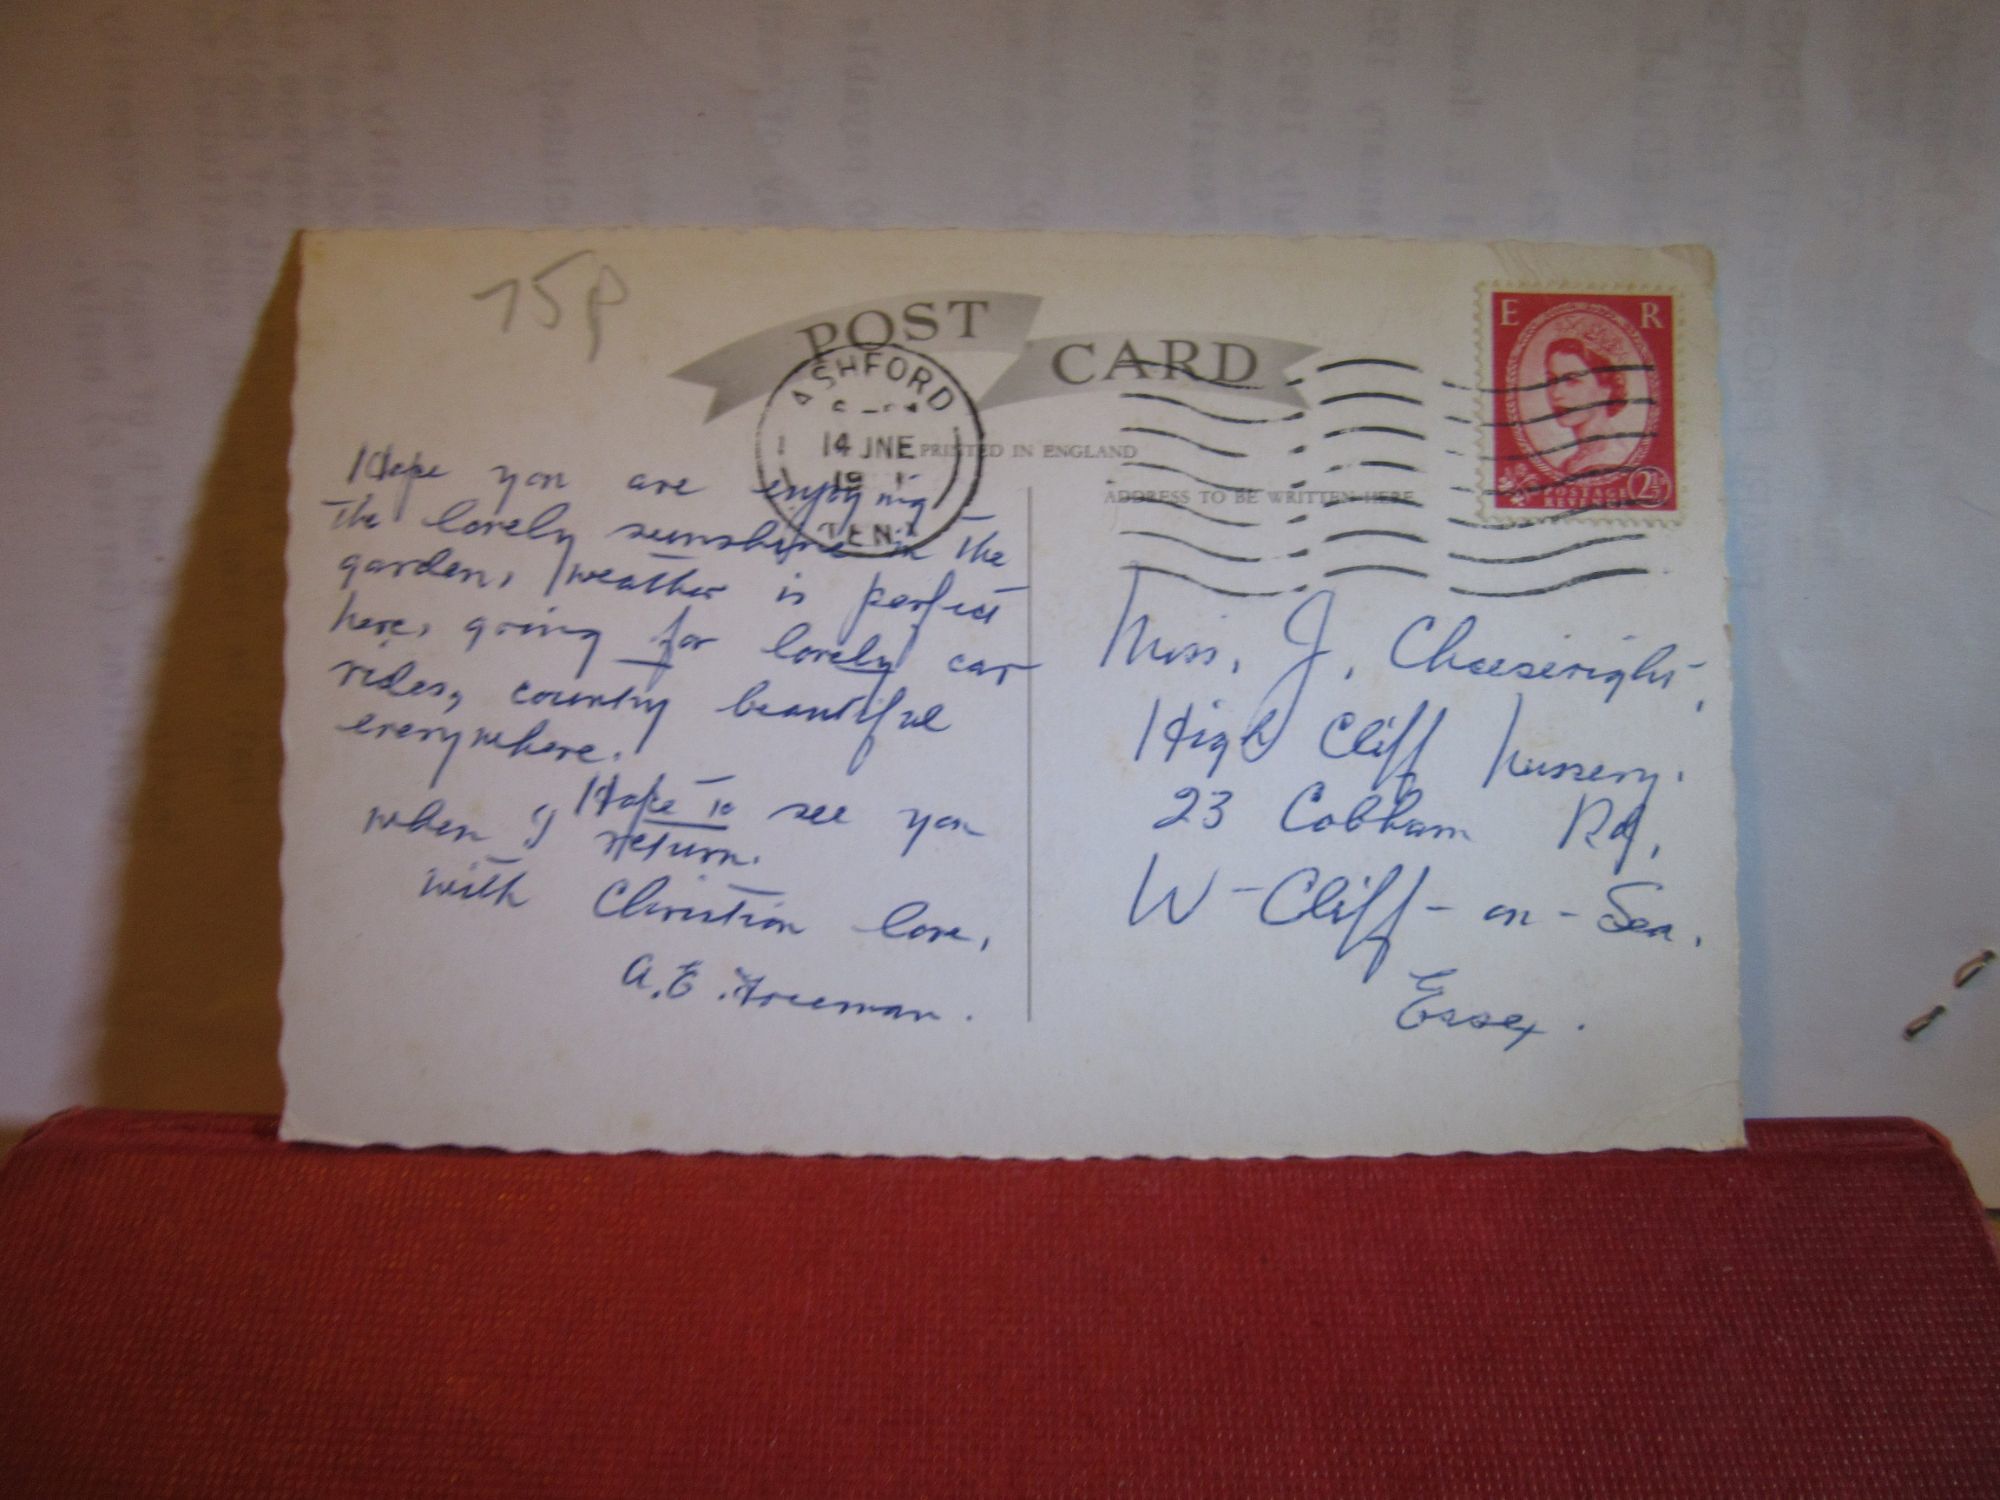 75p
POST CARD
ASHFORD
14 JNE
19
KENT
PRINTED IN ENGLAND
ADDRESS TO BE WRITTEN HERE
E R
POSTAGE
REVENUE
2½
Hope you are enjoying
the lovely sunshine in the
garden, weather is perfect
here, going for lovely car
rides, country beautiful
everywhere.
Hope to see you
when I return.
with Christian love,
A.E. Freeman.
Miss, J, Cheeseright,
High Cliff Nursery.
23 Cobham Rd,
W-Cliff-on-Sea,
Essex.